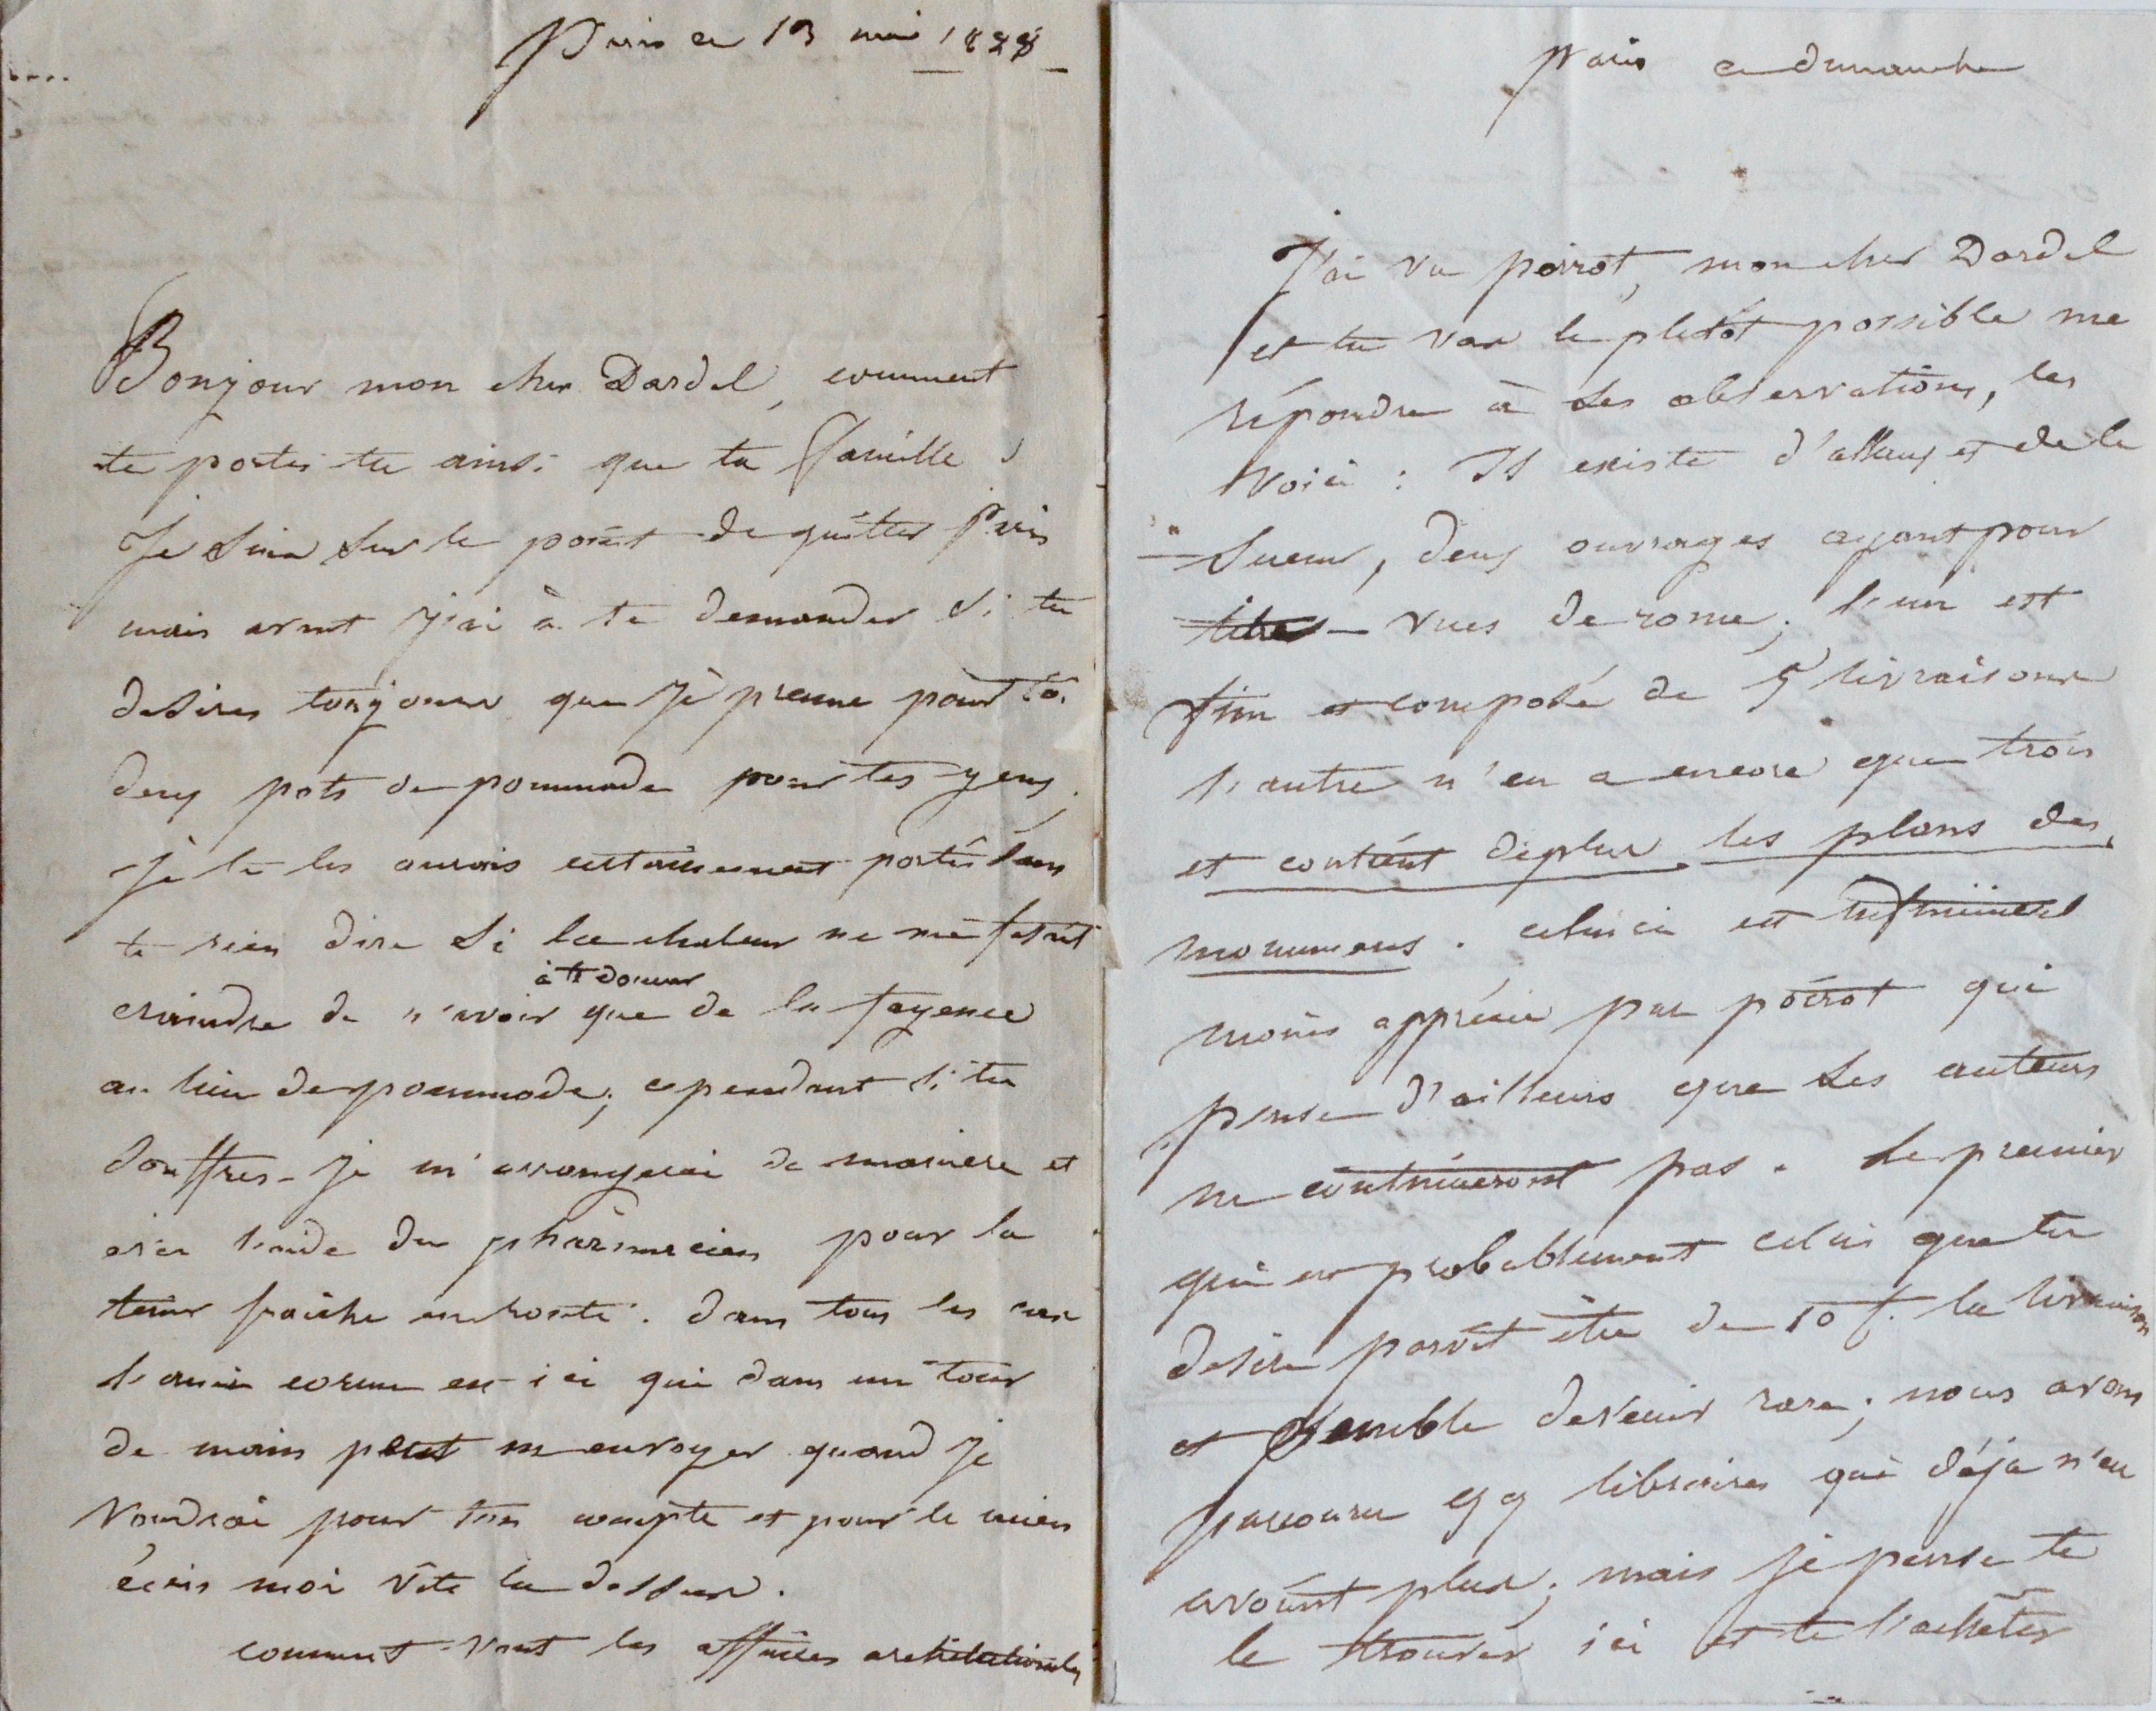 Paris ce 13 mai 1828
Bonjour mon cher Dardel, comment
te portes tu ainsi que ta famille ?
Je suis sur le point de quitter Paris
mais avant j'ai à te demander si tu
desires toujours que je prenne pour toi
deux pots de pommade pour tes yeux.
je te les aurois certainement portés sans
te rien dire si la chaleur ne me fesoit
craindre de n'avoir à te donner que de la fayence
au lieu de pommade; cependant si tu
souffres je m'arrangerai de maniere et
avec l'aide du pharmacien pour la
tenir fraîche en route. dans tous les cas
l'ami est ici qui dans un tour
de main peut m'envoyer quand je
voudrai pour ton compte et pour le mien
écris moi vite la dessus.
comment vont les affaires
Paris ce dimanche
J'ai vu poirot, mon cher Dardel
et tu vas le plutôt possible me
répondre à ses observations, les
voici : Il existe d'allaux et de le
sueur, deux ouvrages ayant pour
titres vues de rome; l'un est
fini et composé de 5 livraisons
l'autre n'en a encore que trois
et contient de plus les plans des
monumens. celui ci est infiniment
moins apprécié par poirot qui
pense d'ailleurs que ses auteurs
ne continueront pas. Le premier
qui est probablement celui que tu
desire paroit être de 10 f. la livraison
et semble devenir rare; nous avons
parcouru qq libraires qui déja n'en
avoient plus; mais je pense te
le trouver ici et te l'acheter